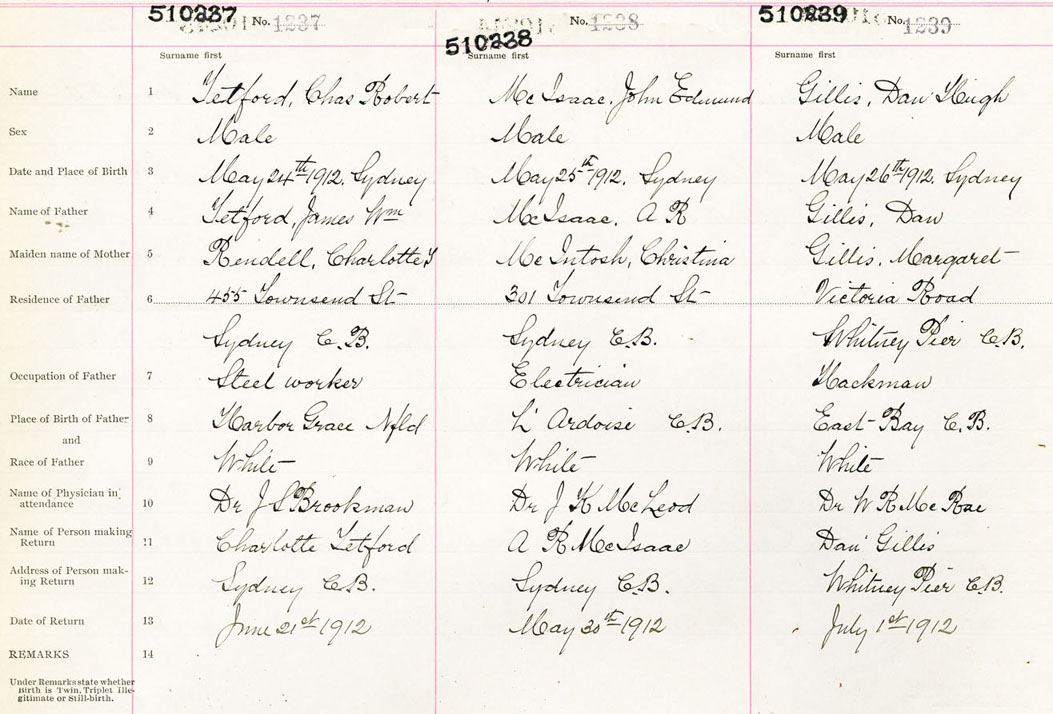 510237 No. 1237 510238 No. 1238 510239 No. 1239
Surname first Surname first Surname first
Name 1 Tetford, Chas Robert Mc Isaac, John Edmund Gillis, Dan Hugh
Sex 2 Male Male Male
Date and Place of Birth 3 May 24th 1912. Sydney May 25th 1912. Sydney May 26th 1912. Sydney
Name of Father 4 Tetford, James Wm McIsaac, A R Gillis, Dan
Maiden name of Mother 5 Rendell, Charlotte Mc Intosh, Christina Gillis, Margaret
Residence of Father 6 455 Townsend St 301 Townsend St Victoria Road
Sydney C.B. Sydney C.B. Whitney Pier C.B.
Occupation of Father 7 Steel worker Electrician Hackman
Place of Birth of Father 8 Harbor Grace Nfld L' Ardoise C.B. East Bay C.B.
and
Race of Father 9 White White White
Name of Physician in attendance 10 Dr J S Brookman Dr J K McLeod Dr W R Mc Rae
Name of Person making Return 11 Charlotte Tetford A R McIsaac Dan Gillis
Address of Person mak-
ing Return 12 Sydney C.B. Sydney C.B. Whitney Pier C.B.
Date of Return 13 June 21st 1912 May 30th 1912 July 1st 1912
REMARKS 14
Under Remarks state whether
Birth is Twin, Triplet Ille-
gitimate or Still-birth.